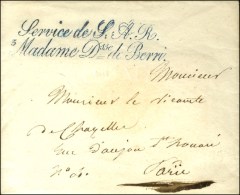 Service de S. A. R.
Madame D.sse de Berri.
Monsieur
Monsieur le vicomte
de Chazelles
rue d'anjou St honoré
N° 6.
Paris